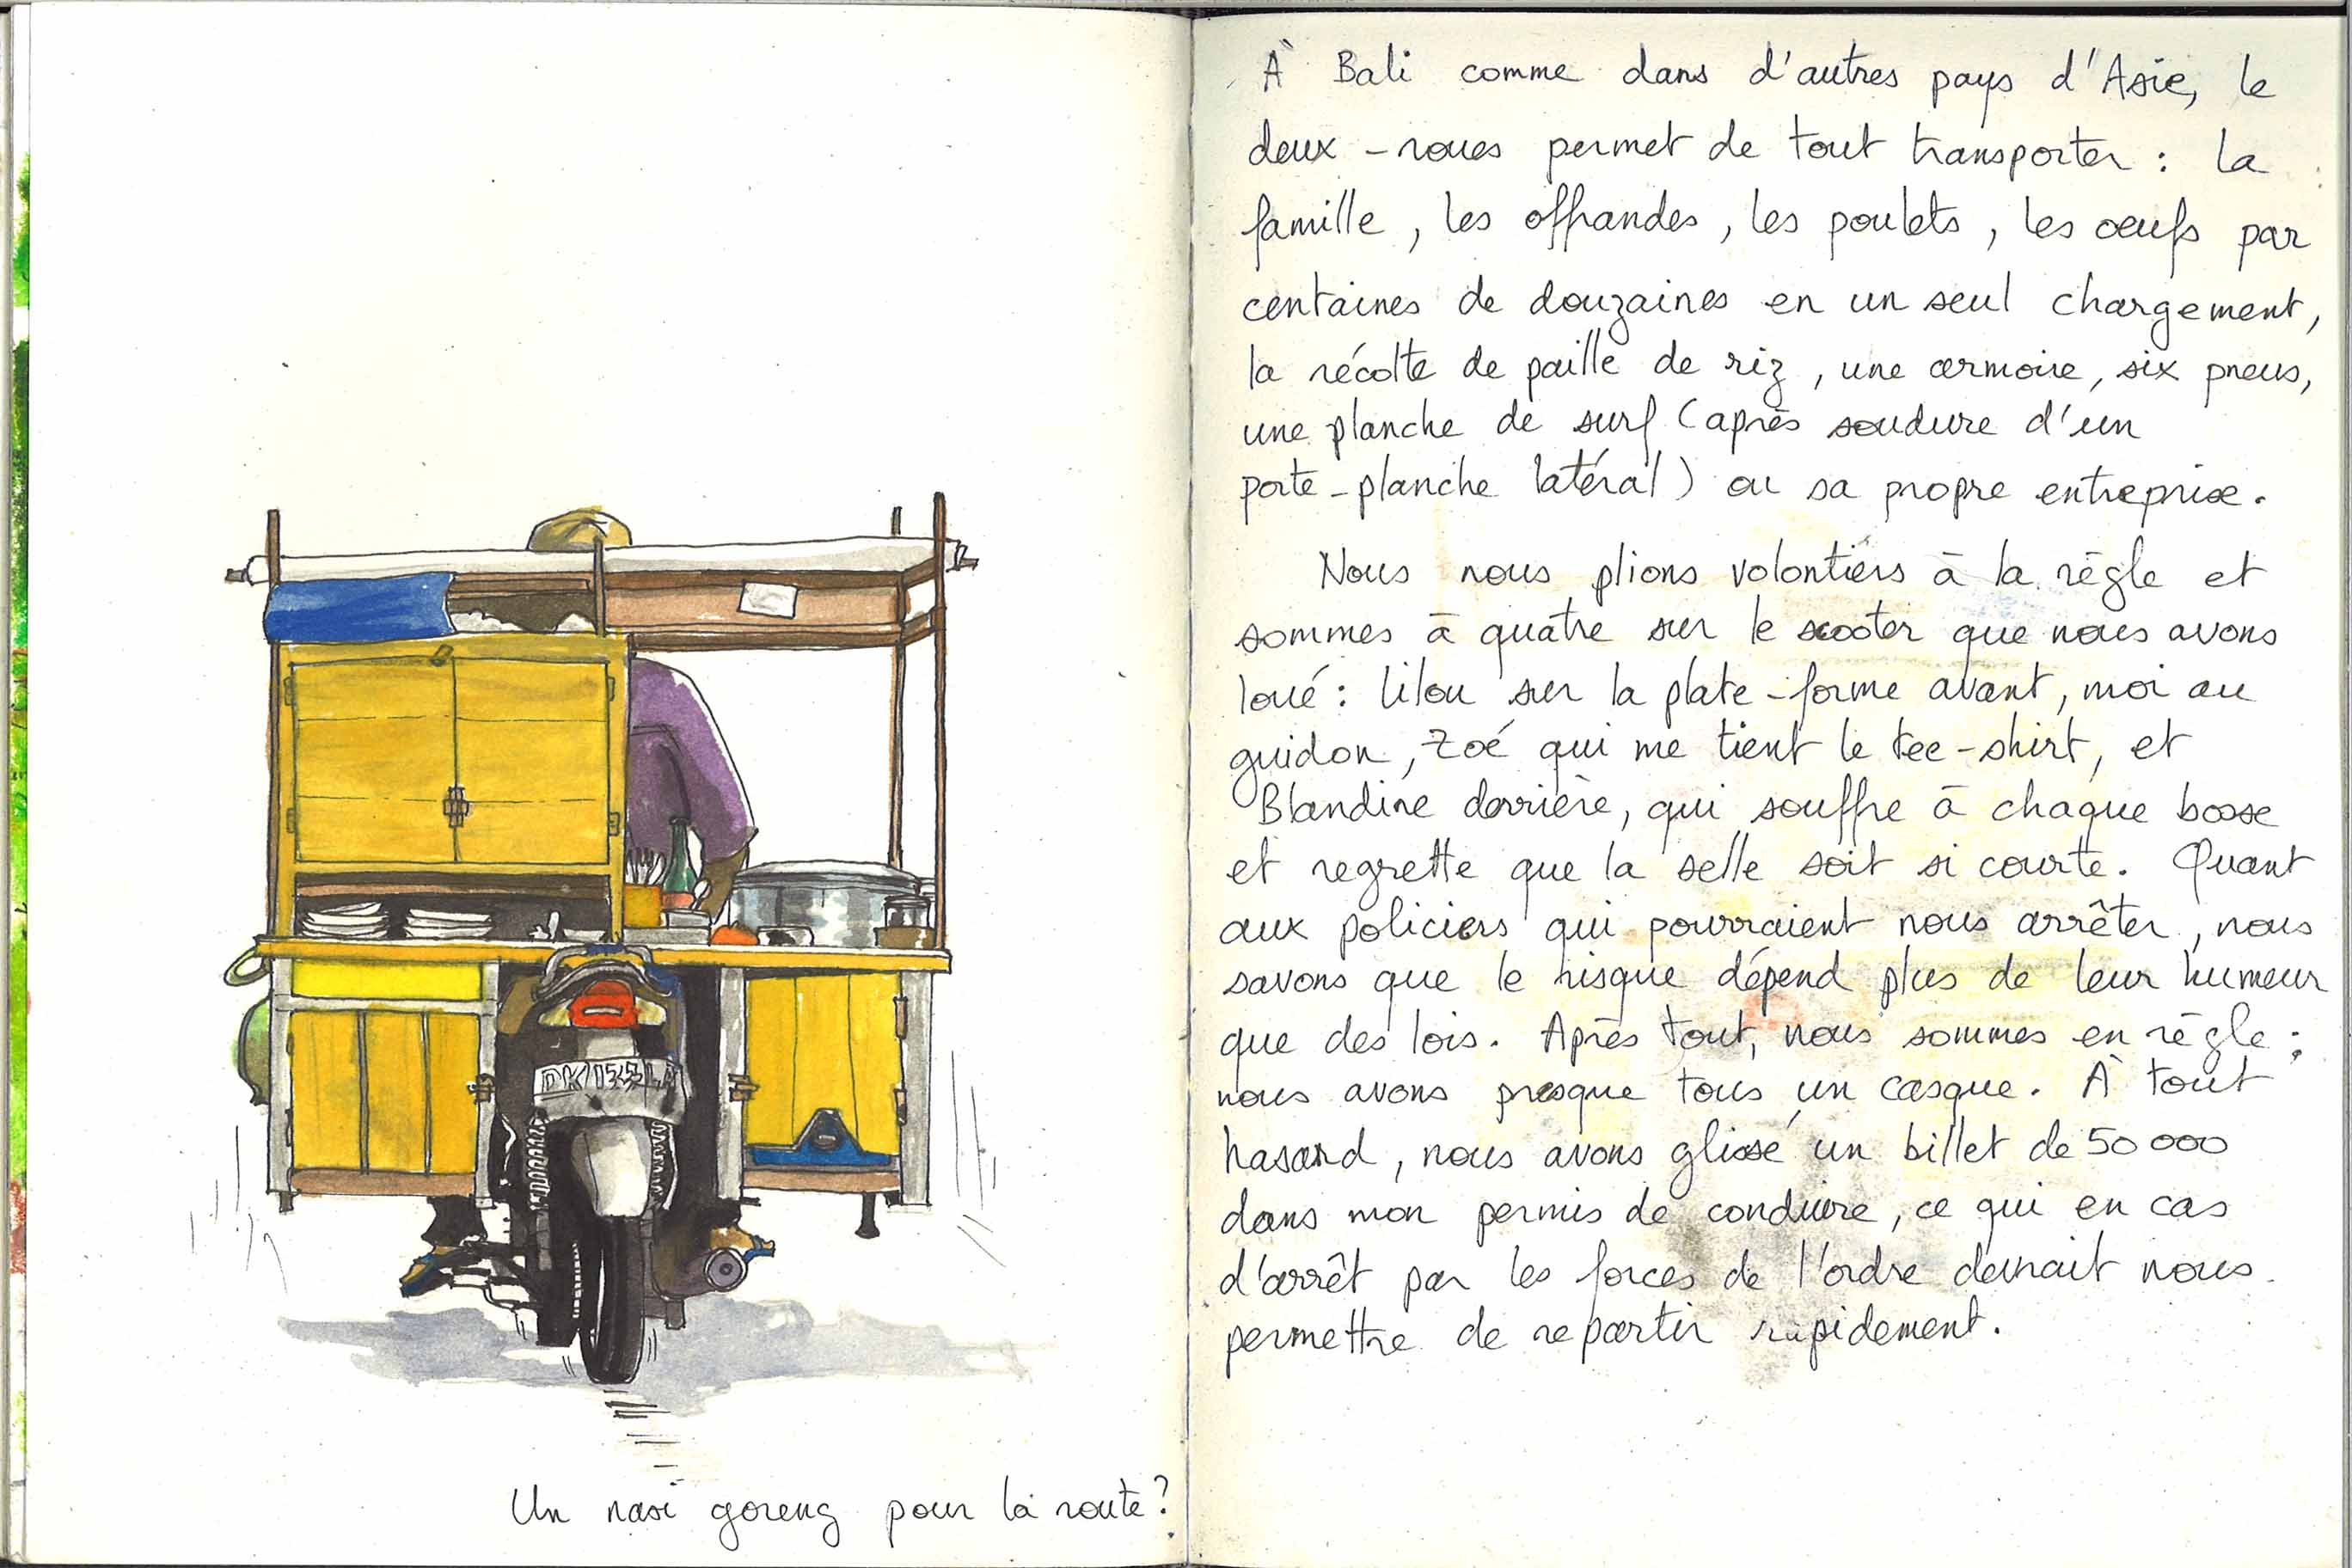 Un nasi goreng pour la route ?
À Bali comme dans d'autres pays d'Asie, le
deux-roues permet de tout transporter : la
famille, les offrandes, les poulets, les oeufs par
centaines de douzaines en un seul chargement,
la récolte de paille de riz, une armoire, six pneus,
une planche de surf (après soudure d'un
porte-planche latéral) ou sa propre entreprise.
Nous nous plions volontiers à la règle et
sommes à quatre sur le scooter que nous avons
loué : Lilou sur la plate-forme avant, moi au
guidon, Zoé qui me tient le tee-shirt, et
Blandine derrière, qui souffre à chaque bosse
et regrette que la selle soit si courte. Quant
aux policiers qui pourraient nous arrêter, nous
savons que le risque dépend plus de leur humeur
que des lois. Après tout, nous sommes en règle :
nous avons presque tous un casque. À tout
hasard, nous avons glissé un billet de 50 000
dans mon permis de conduire, ce qui en cas
d'arrêt par les forces de l'ordre devrait nous
permettre de repartir rapidement.